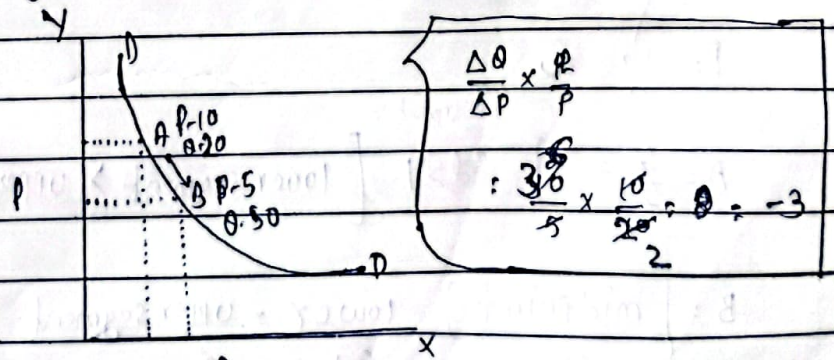 Y
D
A P-10
Q.20
P B P-5
Q.50
D
X
ΔQ/ΔP ×
P
5 × 10/20 = = -3
2